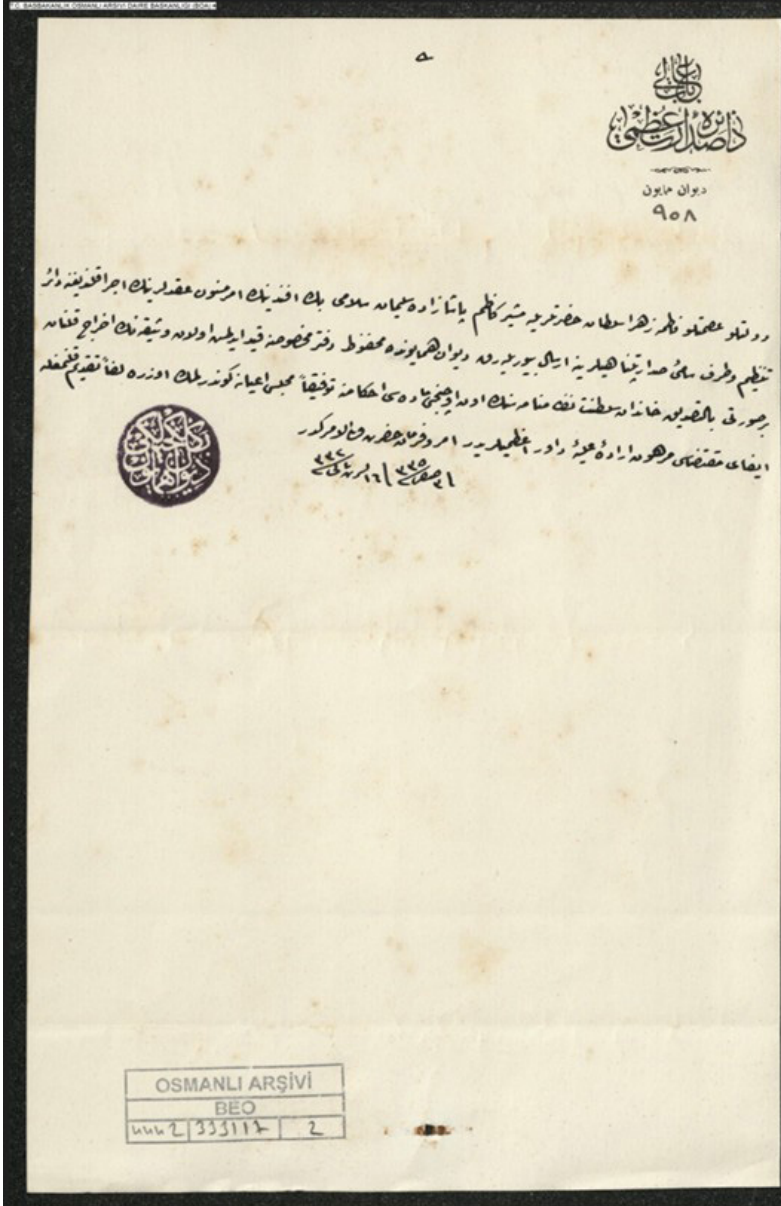 T.C. BAŞBAKANLIK OSMANLI ARŞİVİ DAİRE BAŞKANLIĞI (BOA)
باب عالی
دائرهٔ صدارت عظمی
دیوان همایون
٩٥٨
دولتلو عصمتلو فاطمه زهرا سلطان حضرتلریله مشیر كاظم پاشازاده سلیمان سلامی بك افندینك امر مسنون عقدلرینك اجرا قلندیغنه دائر
تنظیم وطرف سامئ صدارتپناهیلرینه ارسال بیوریلەرق دیوان همایونده محفوظ دفتر مخصوصنه قید ایدلمش اولان وثیقه‌نك اخراج قلنان
بر صورتی بالتصدیق خاندان سلطنت نظامنامه‌سنك اون اوچنجی ماده‌سی احكامنه توفیقاً مجلس اعیانه كوندرلمك اوزره لفاً تقدیم قلنمغله
ایفای مقتضاسی مرهون ارادهٔ علیهٔ داور اعظمیلریدر امر و فرمان حضرت من له الامركدر
٣٣٥
٣٣٢
دیوان همایون
OSMANLI ARŞİVİ
BEO
4442 333117 2